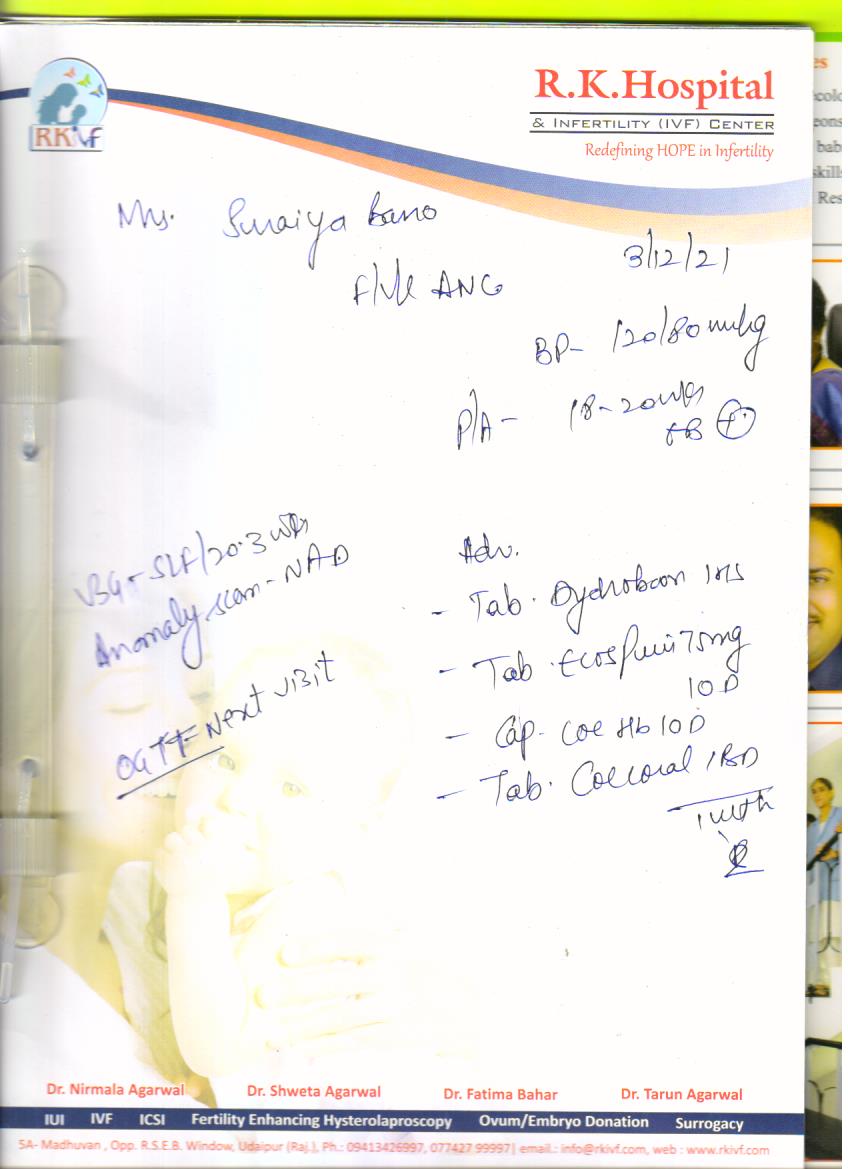 R.K.Hospital
& INFERTILITY (IVF) CENTER
Redefining HOPE in Infertility
RKivf
Mrs. Suraiya Bano
3/12/21
F/U/c ANC
BP- 120/80 mmHg
P/A- 18-20 wks
USG - SLF/20.3 wks
Anomaly scan - NAD
OGTT Next visit
Adv.
- Tab. Dydroboon 1 HS
- Tab. Ecosprin 75mg
1OD
- Cap. Coe Hb 1OD
- Tab. Coecoral 1BD
Dr. Nirmala Agarwal Dr. Shweta Agarwal Dr. Fatima Bahar Dr. Tarun Agarwal
IUI IVF ICSI Fertility Enhancing Hysterolaproscopy Ovum/Embryo Donation Surrogacy
5A- Madhuvan , Opp. R.S.E.B. Window, Udaipur (Raj.), Ph.: 09413426997, 077427 99997| email.: info@rkivf.com, web : www.rkivf.com